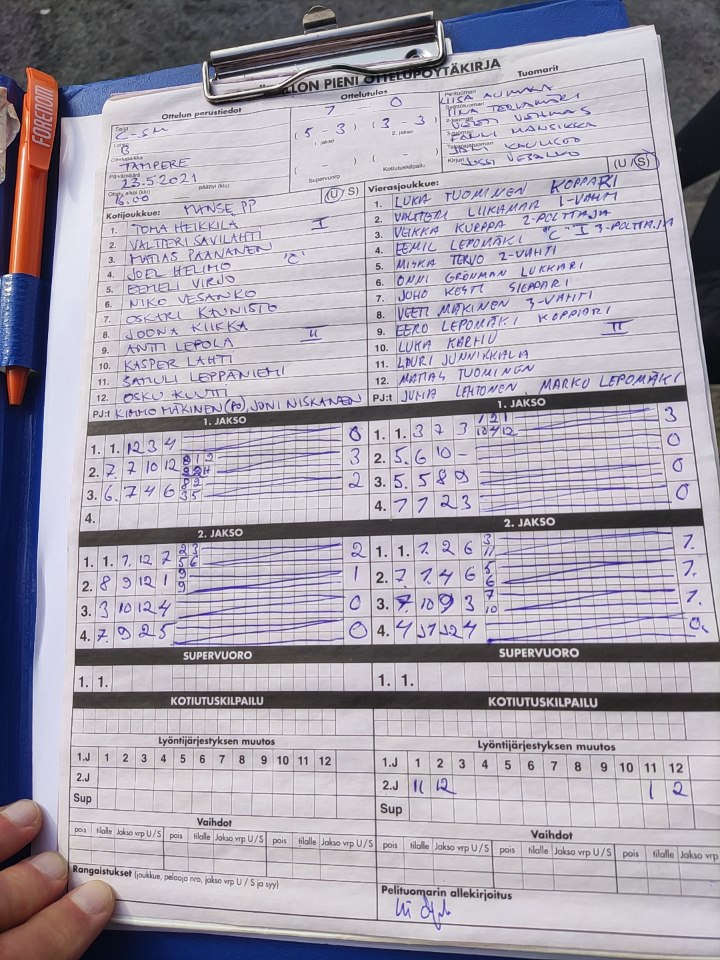 FORENOM
LLON PIENI OTTELUPÖYTÄKIRJA
Ottelun perustiedot
Ottelutulos
Tuomarit
Sarja
C-SM
7 - 0
(5 - 3) (3 - 3)
1. jakso
2. jakso
( - ) ( - )
Supervuoro
Kotiutuskilpailu
Lohko
B
Ottelupaikka
TAMPERE
Päivämäärä
23.5.2021
Ottelu alkoi (klo)
16.00
päättyi (klo)
Pelituomari
Syöttötuomari
2-tuomari
3-tuomari
Takarajatuomari
Kirjuri
Kotijoukkue:
MANSE PP
(U/S)
1. TOMA HEIKKILÄ I
2. VALTTERI SAVILAHTI
3. MATIAS PAANANEN
4. JOEL HELIMO "C"
5. EEMELI VIRJO
6. NIKO VESANKO
7. OSKARI KAUNISTO
8. JOONA KIIKKA
9. ANTTI LEPOLA II
10. KASPER LAHTI
11. SAMULI LEPPÄNIEMI
12. OSKU KUUTTI
PJ:t KIMMO MÄKINEN (PJ), JONI NISKANEN
Vierasjoukkue:
(U/S)
1. LUKA TUOMINEN KOPPARI
2. VALTTERI LIIKAMAA 1-VAHTI
3. VEIKKA KURPPA 2-POLTTAJA
4. EEMIL LEPOMÄKI "C" I 3-POLTTAJA
5. MISKA TERVO 2-VAHTI
6. ONNI GRÖNMAN LUKKARI
7. JUHO KESTI SIEPPARI
8. VEETI MÄKINEN 3-VAHTI
9. EERO LEPOMÄKI KOPPARI
10. LUKA KARHU II
11. LAURI JUNNIKKALA
12. MATIAS TUOMINEN
PJ:t JUHA LEHTONEN MARKO LEPOMÄKI
1. JAKSO
1. 1. 12 3 4 0
2. 7. 7 10 12 3
3. 6. 7 4 6 2
4.
1. JAKSO
1. 1. 3 7 3 1 2 1 10 4 12 3
2. 5. 6 10 - 0
3. 5. 5 8 9 0
4. 7 7 2 3 0
2. JAKSO
1. 1. 7. 12 7 2 3 5 6 2
2. 8 9 12 1 9 9 1
3. 3 10 12 4 0
4. 7. 9 2 5 0
2. JAKSO
1. 1. 7. 2 6 3 11 1.
2. 7. 7. 4 6 5 6 1.
3. 7. 10 9 3 7 10 1.
4. 4 11 12 4 0.
SUPERVUORO
1. 1.
SUPERVUORO
1. 1.
KOTIUTUSKILPAILU
KOTIUTUSKILPAILU
Lyöntijärjestyksen muutos
1.J 1 2 3 4 5 6 7 8 9 10 11 12
2.J
Sup
Lyöntijärjestyksen muutos
1.J 1 2 3 4 5 6 7 8 9 10 11 12
2.J 11 12 1 2
Sup
Vaihdot
pois tilalle Jakso vrp U/S pois tilalle Jakso vrp U/S
Vaihdot
pois tilalle Jakso vrp U/S pois tilalle Jakso vrp
Rangaistukset (joukkue, pelaaja nro, jakso vrp U/S ja syy)
Pelituomarin allekirjoitus